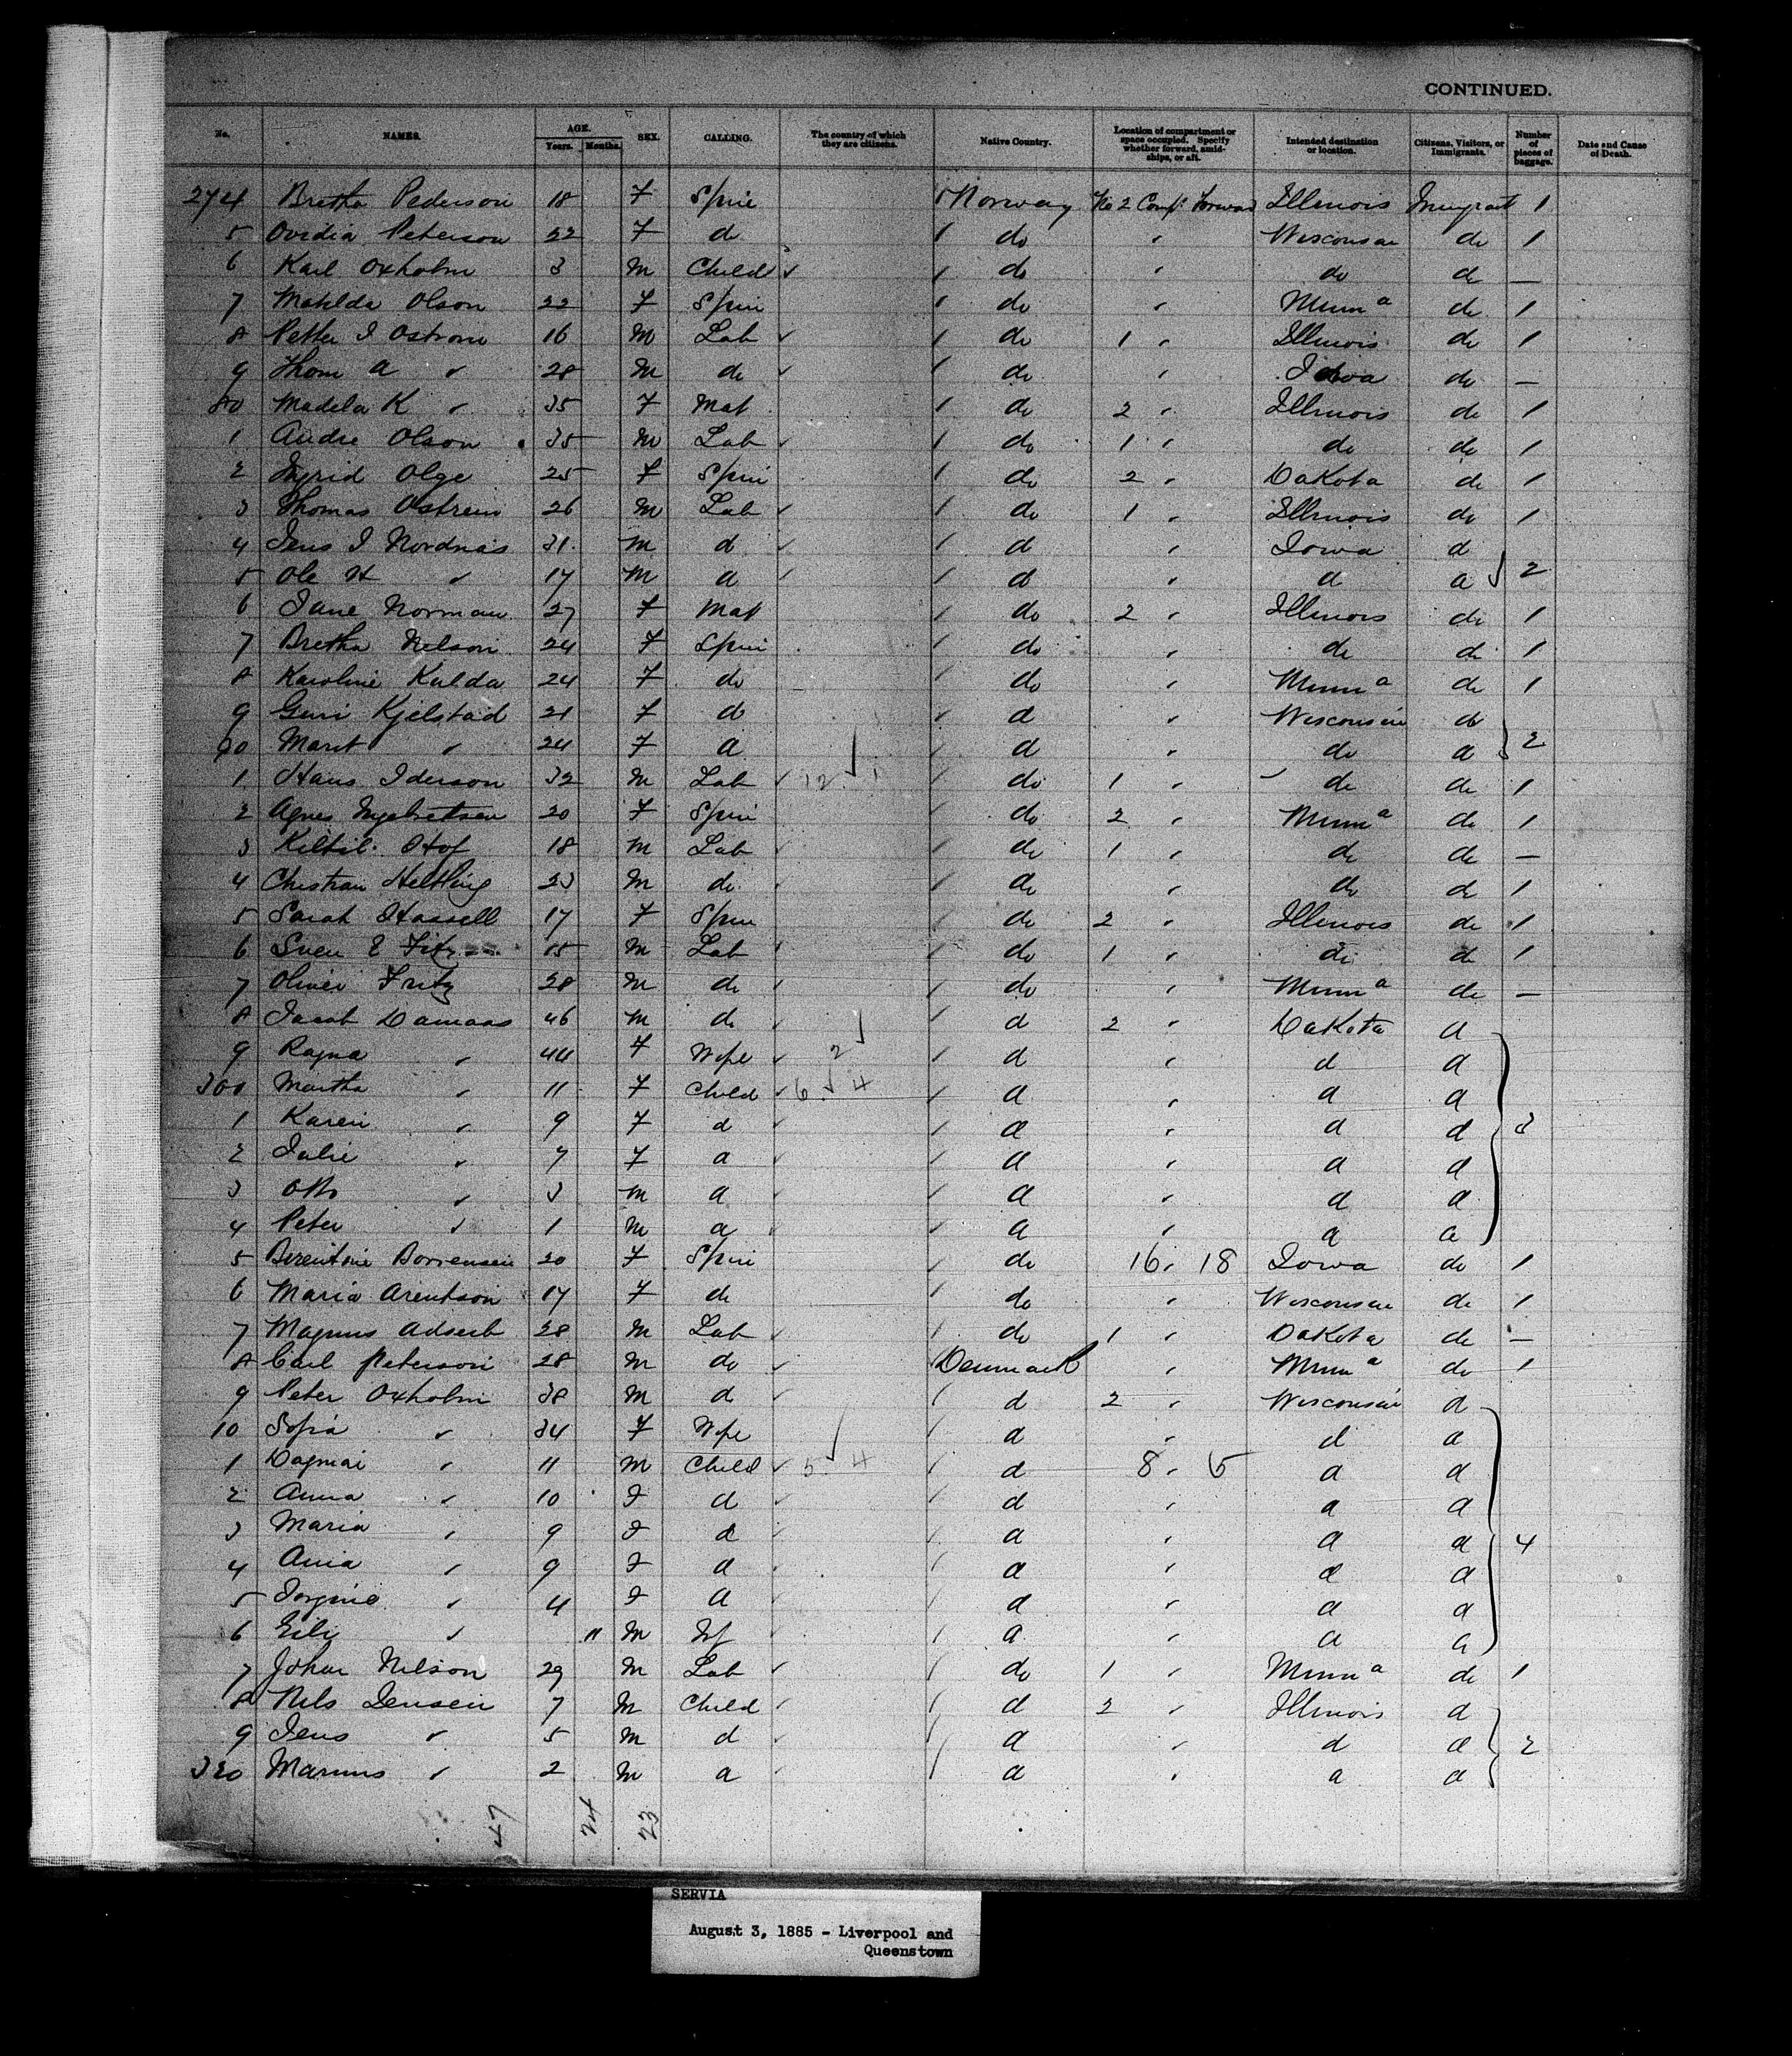 CONTINUED.
No. NAMES. AGE. Years. Months. SEX. CALLING. The country of which they are citizens. Native Country. Location of compartment or space occupied. Specify whether forward, amidships, or aft. Intended destination or location. Citizens, Visitors, or Immigrants. Number of pieces of baggage. Date and Cause of Death.
274 Bretha Pederson 18 F Spin Norway No 2 Comp. Forward Illinois Immigrant 1
5 Ovidia Peterson 22 F d do " Wisconsin do 1
6 Karl Oxholm 3 M Child do " do do —
7 Matilda Olson 22 F Spin do " Minna do 1
8 Petter I Ostrom 16 M Lab do 1 " Illinois do 1
9 Thom A " 28 M do do " Iowa do —
80 Madela K " 35 F Mat do 2 " Illinois do 1
1 Andre Olson 35 M Lab do 1 " do do 1
2 Ingrid Olge 25 F Spin do 2 " Dakota do 1
3 Thomas Ostrein 26 M Lab do 1 " Illinois do 1
4 Jens I Nordnas 31 M d d " Iowa d
5 Ole H " 17 M d d " d d 2
6 Jane Norman 27 F Mat do 2 " Illinois do 1
7 Bretha Nelson 24 F Spin do " do do 1
8 Karoline Kulda 24 F do do " Minna do 1
9 Guri Kjelstad 21 F d d " Wisconsin do
90 Marit " 24 F d d " do d 2
1 Hans Iderson 32 M Lab 12 do 1 " do do 1
2 Agnes Ingebretsen 20 F Spin do 2 " Minna do 1
3 Kittil Hof 18 M Lab do 1 " do do —
4 Christian Helling 23 M do do " do do 1
5 Sarah Hassell 17 F Spin do 2 " Illinois do 1
6 Sven E 15 M Lab do 1 " do do 1
7 Oliver Fritz 28 M do do " Minna do —
8 Jacob Damaas 46 M do d 2 " Dakota d
9 Ragna " 44 F Wife 2 d " d d
300 Martha " 11 F Child 6 4 d " d d
1 Karen " 9 F d d " d d 3
2 Julie " 7 F d d " d d
3 Otto " 3 M d d " d d
4 Peter " 1 M d d " d d
5 Berentine Borrensen 20 F Spin do 16 " 18 Iowa do 1
6 Maria Arentson 17 F do do " Wisconsin do 1
7 Magnus Adserb 28 M Lab do 1 " Dakota do —
8 Carl Peterson 28 M do Denmark " Minna do 1
9 Peter Oxholm 38 M d d 2 " Wisconsin d
10 Sofia " 34 F Wife d " d d
1 Dagmar " 11 M Child 5 4 d 8 " 5 d d
2 Anna " 10 F d d " d d
3 Maria " 9 F d d " d d 4
4 Ania " 9 F d d " d d
5 " 4 F d d " d d
6 " 11 M Inf d " d d
7 Johan Nilson 29 M Lab do 1 " Minna do 1
8 Nils Jensen 7 M Child d 2 " Illinois d
9 Jens " 5 M d d " d d 2
320 Marinus " 2 M d d " d d
47 24 23
SERVIA
August 3, 1885 - Liverpool and
Queenstown